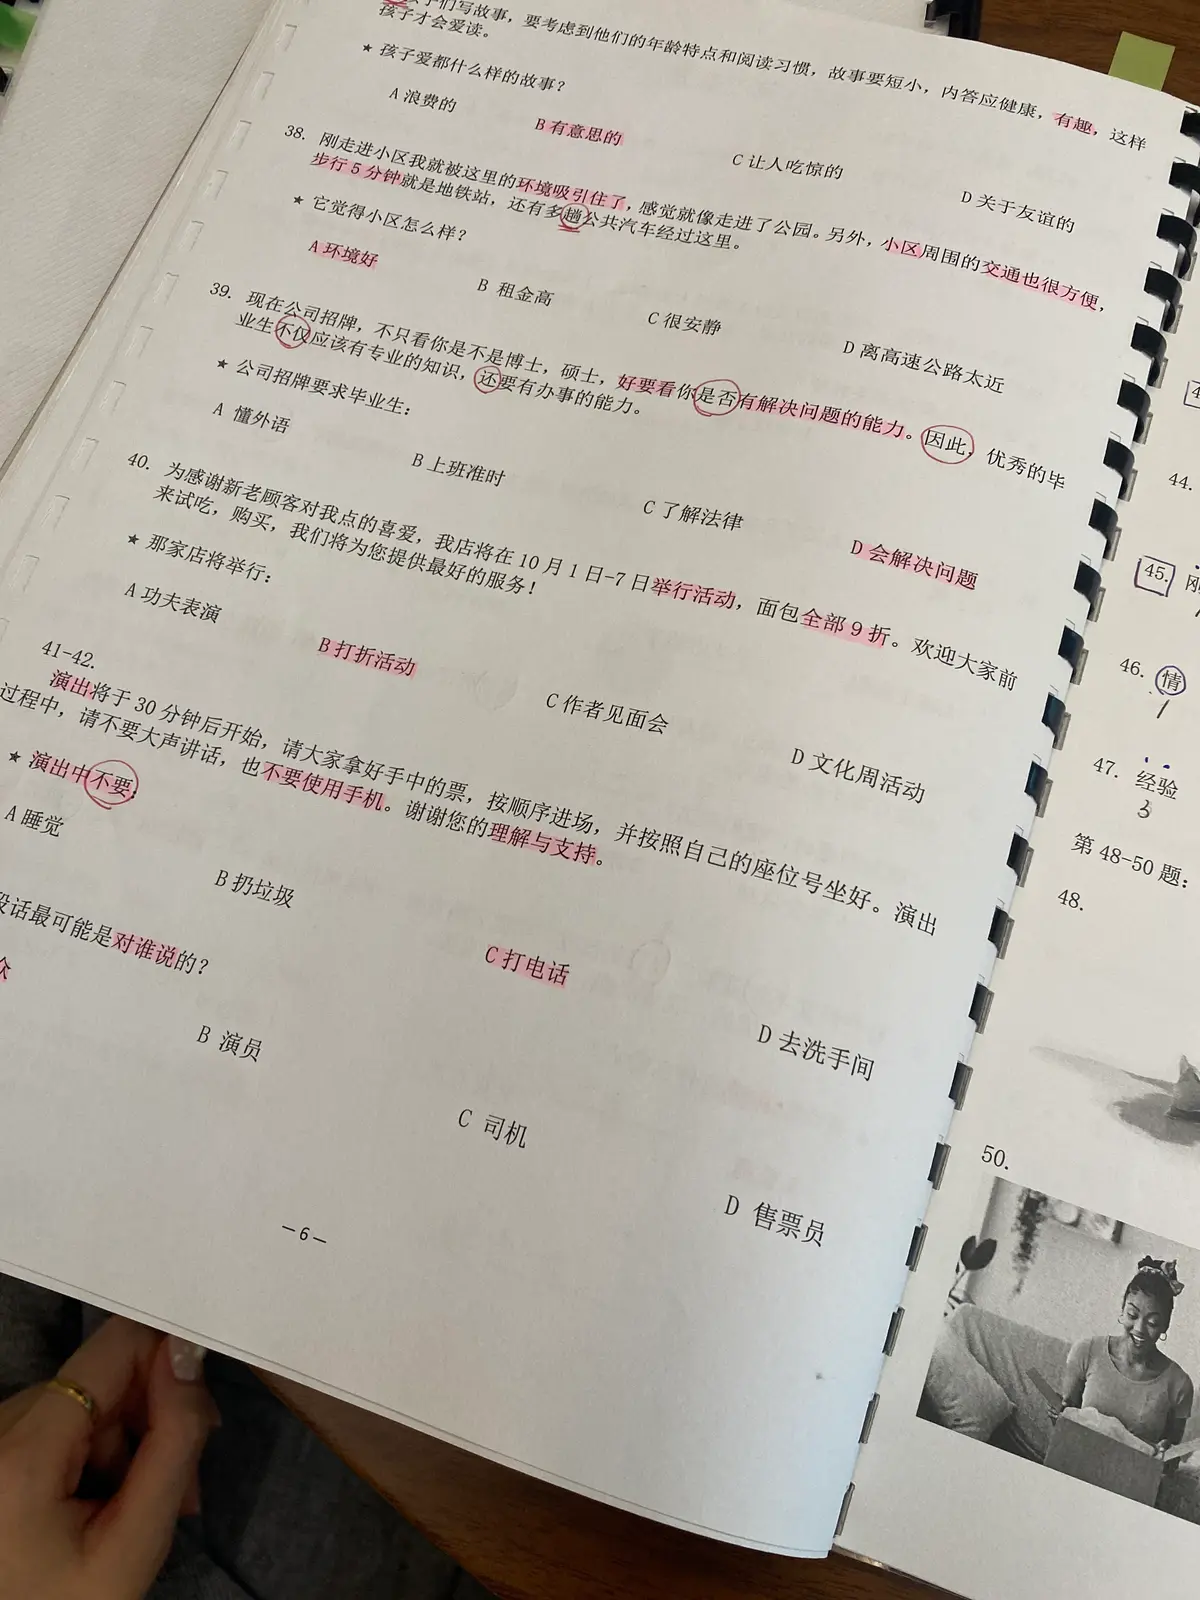 子们写故事，要考虑到他们的年龄特点和阅读习惯，故事要短小，内答应健康，有趣，这样
孩子才会爱读。
★ 孩子爱都什么样的故事？
A 浪费的 B 有意思的 C 让人吃惊的 D 关于友谊的
38. 刚走进小区我就被这里的环境吸引住了，感觉就像走进了公园。另外，小区周围的交通也很方便，
步行 5 分钟就是地铁站，还有多趟公共汽车经过这里。
★ 它觉得小区怎么样？
A 环境好 B 租金高 C 很安静 D 离高速公路太近
39. 现在公司招牌，不只看你是不是博士，硕士，好要看你是否有解决问题的能力。因此，优秀的毕
业生不仅应该有专业的知识，还要有办事的能力。
★ 公司招牌要求毕业生：
A 懂外语 B 上班准时 C 了解法律 D 会解决问题
40. 为感谢新老顾客对我点的喜爱，我店将在 10 月 1 日-7 日举行活动，面包全部 9 折。欢迎大家前
来试吃，购买，我们将为您提供最好的服务！
★ 那家店将举行：
A 功夫表演 B 打折活动 C 作者见面会 D 文化周活动
41-42.
演出将于 30 分钟后开始，请大家拿好手中的票，按顺序进场，并按照自己的座位号坐好。演出
过程中，请不要大声讲话，也不要使用手机。谢谢您的理解与支持。
★ 演出中不要：
A 睡觉 B 扔垃圾 C 打电话 D 去洗手间
段话最可能是对谁说的？
众 B 演员 C 司机 D 售票员
—6—
44.
45. 刚
46. 情
47. 经验
3
第 48-50 题：
48.
50.